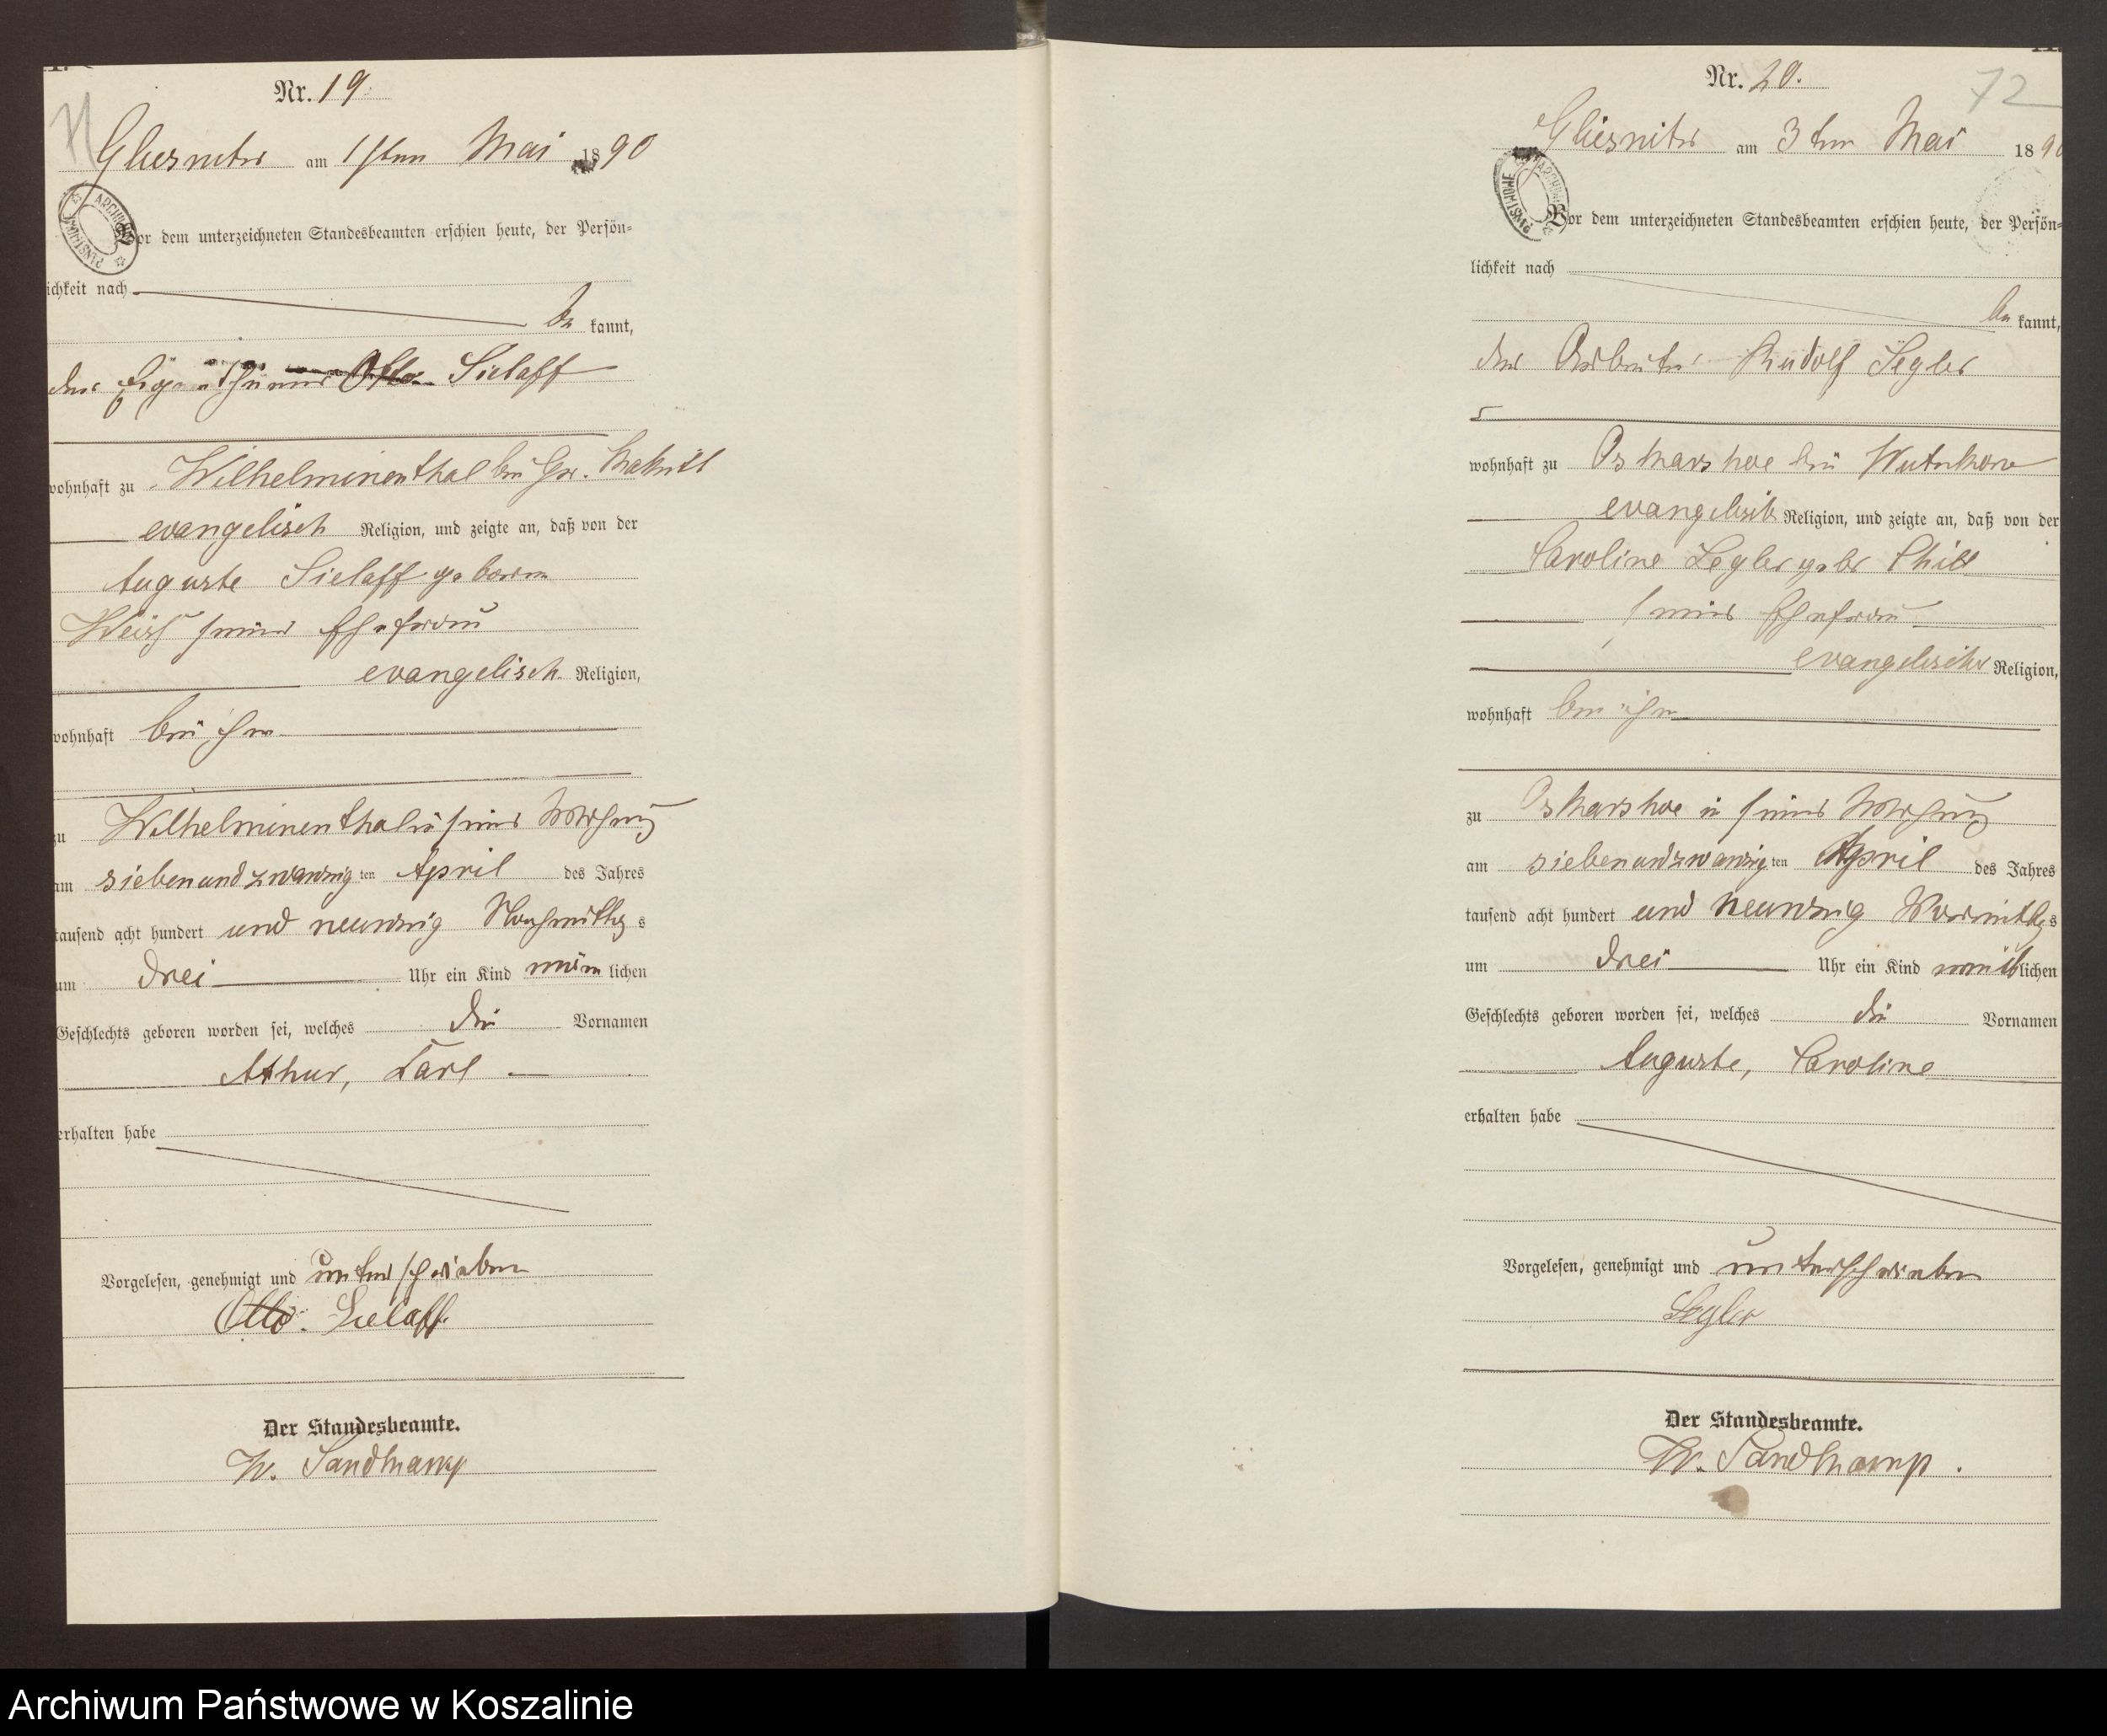 Nr. 19.
71
Gliesnitz am 1ten Mai 1890
ARCHIWUM PAŃSTWOWE
Vor dem unterzeichneten Standesbeamten erschien heute, der Persön=
lichkeit nach
be kannt,
der Eigenthümer Otto Sielaff
wohnhaft zu Wilhelminenthal bei Gr.
evangelisch Religion, und zeigte an, daß von der
Auguste Sielaff geboren
Weiß seiner Ehefrau
evangelisch Religion,
wohnhaft bei ihm
zu Wilhelminenthal in seiner Wohnung
am siebenundzwanzig ten April des Jahres
tausend acht hundert und neunzig Nachmittags
um drei Uhr ein Kind männ lichen
Geschlechts geboren worden sei, welches die Vornamen
Athur, Karl
erhalten habe
Vorgelesen, genehmigt und unterschrieben
Otto Sielaff.
Der Standesbeamte.
W. Sandkamp
Nr. 20.
72
Gliesnitz am 3ten Mai 1890
ARCHIWUM PAŃSTWOWE
Vor dem unterzeichneten Standesbeamten erschien heute, der Persön=
lichkeit nach
be kannt,
der Arbeiter Rudolf Segler
wohnhaft zu Oskarshoe bei Wutzkow
evangelisch Religion, und zeigte an, daß von der
Caroline Segler geb
seiner Ehefrau
evangelischer Religion,
wohnhaft bei ihm
zu Oskarshoe in seiner Wohnung
am siebenundzwanzig ten April des Jahres
tausend acht hundert und neunzig Vormittags
um drei Uhr ein Kind weiblichen
Geschlechts geboren worden sei, welches die Vornamen
Auguste, Caroline
erhalten habe
Vorgelesen, genehmigt und unterschrieben
Segler
Der Standesbeamte.
W. Sandkamp.
Archiwum Państwowe w Koszalinie